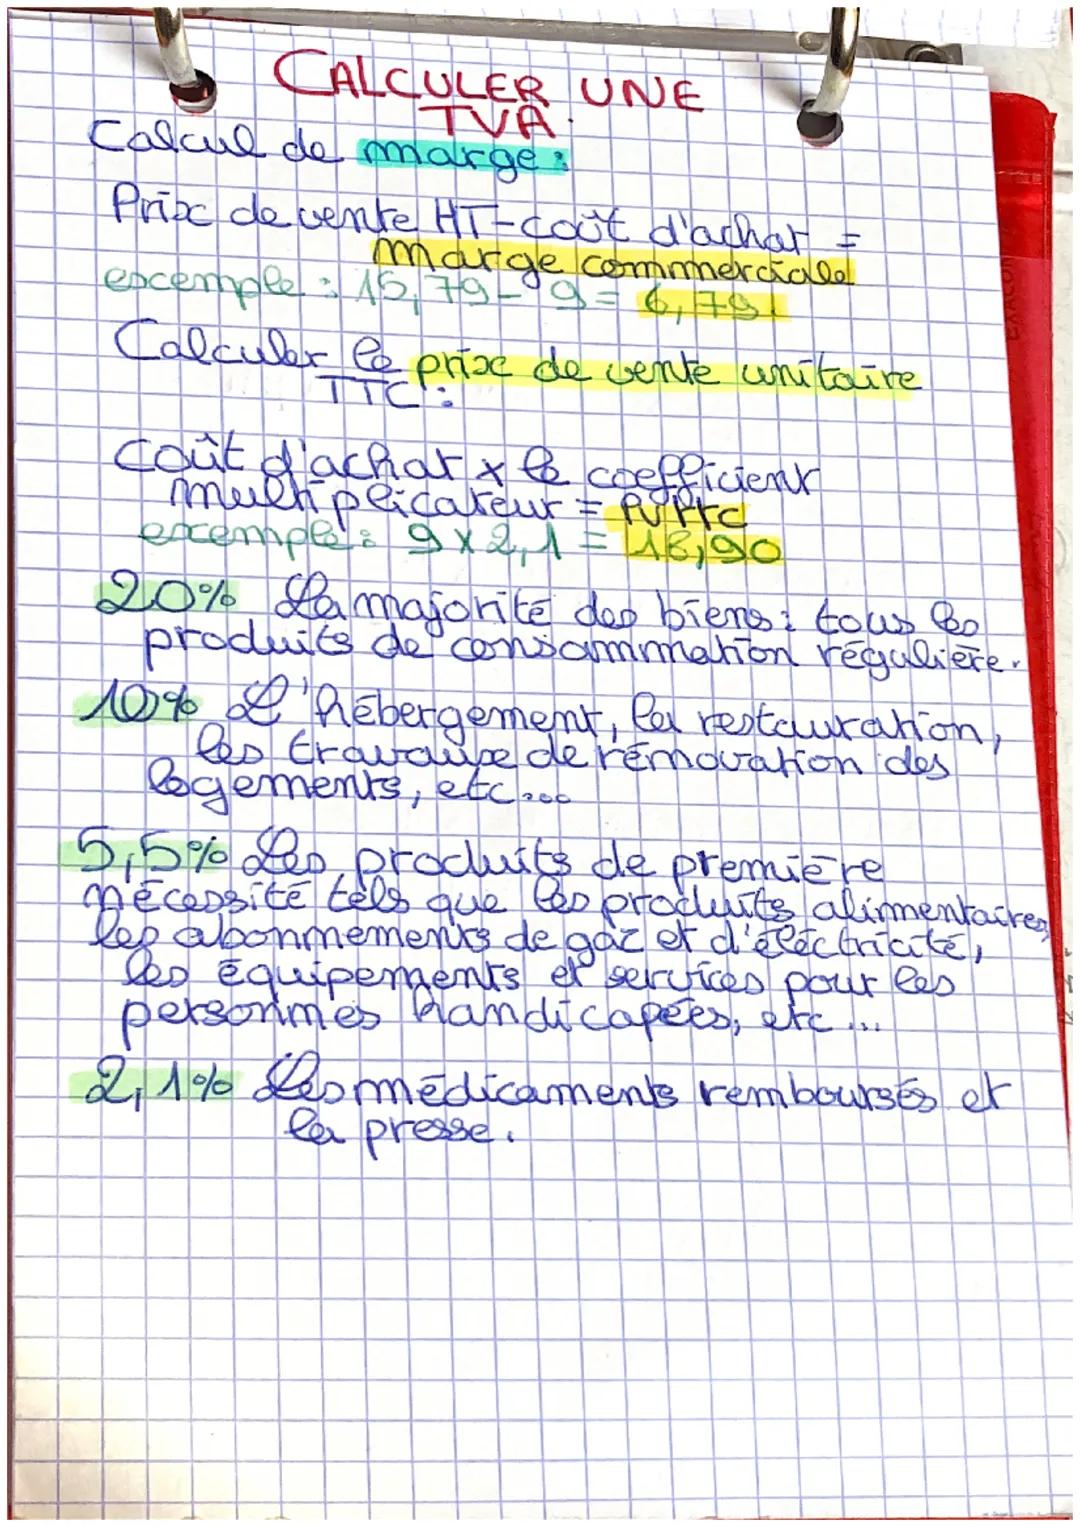 CALCULER UNE
TVA.
Calcul de marge :
Prix de vente HT - coût d'achat =
marge commerciale
excemple : 15,79 - 9 = 6,79
Calculer le prix de vente unitaire
TTC :
Coût d'achat x le coefficient
multiplicateur = PVTTC
exemple : 9 x 2,1 = 18,90
20% La majorité des biens : tous les
produits de consommation régulière.
10% L'hébergement, la restauration,
les travaux de rénovation des
logements, etc...
5,5% Les produits de première
nécessité tels que les produits alimentaires,
les abonnements de gaz et d'éléctricité,
les équipements et services pour les
personnes handicapées, etc...
2,1% Les médicaments remboursés et
la presse.